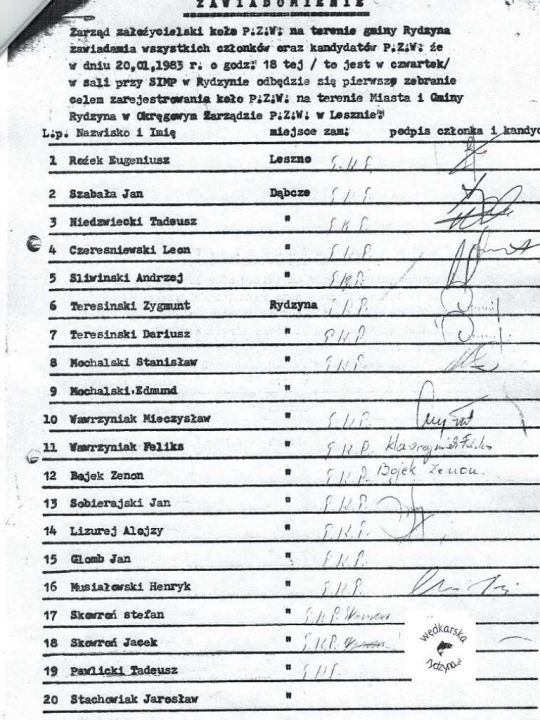 ZAWIADOMIENIE
Zarząd założycielski koło P.Z.W. na terenie gminy Rydzyna
zawiadamia wszystkich członków oraz kandydatów P.Z.W. że
w dniu 20,01,1983 r. o godz. 18 tej / to jest w czwartek/
w sali przy SIMP w Rydzynie odbędzie się pierwsze zebranie
celem zarejestrowania koło P.Z.W. na terenie Miasta i Gminy
Rydzyna w Okręgowym Zarządzie P.Z.W. w Lesznie.
L.p. Nazwisko i Imię miejsce zam. podpis członka i kandyd
1 Rożek Eugeniusz Leszno
2 Szabała Jan Dąbcze
3 Niedzwiecki Tadeusz "
4 Czeresniewski Leon "
5 Sliwinski Andrzej "
6 Teresinski Zygmunt Rydzyna
7 Teresinski Dariusz "
8 Mochalski Stanisław "
9 Mochalski.Edmund "
10 Wawrzyniak Mieczysław "
11 Wawrzyniak Feliks "
12 Bojek Zenon " Bojek Zenon.
13 Sobierajski Jan "
14 Lizurej Alojzy "
15 Glomb Jan "
16 Musiałowski Henryk "
17 Skowroń stefan "
18 Skowroń Jacek "
19 Pawlicki Tadeusz "
20 Stachowiak Jarosław "
wędkarska